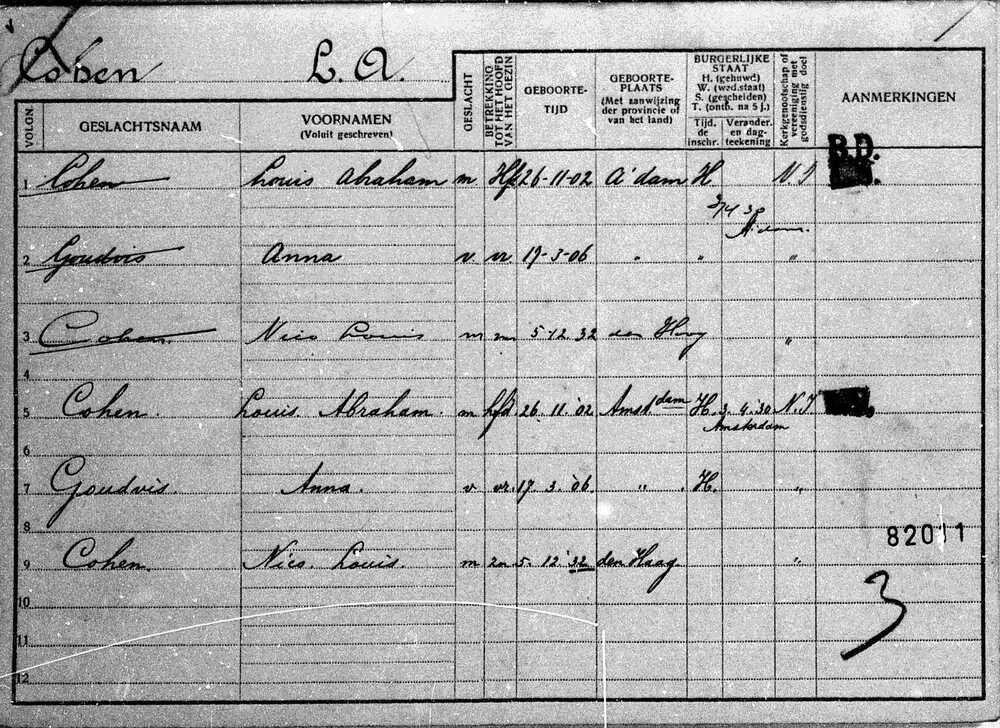 Cohen L. A.
VOLGN.
GESLACHTSNAAM
VOORNAMEN
(Voluit geschreven)
GESLACHT
BETREKKING
TOT HET HOOFD
VAN HET GEZIN
GEBOORTE-
TIJD
GEBOORTE-
PLAATS
(Met aanwijzing
der provincie of
van het land)
BURGERLIJKE
STAAT
H. (gehuwd)
W. (wed.staat)
S. (gescheiden)
T. (ontb. na 5 j.)
Tijd.
de
inschr.
Verander.
en dag-
teekening
Kerkgenootschap of
vereeniging met
godsdienstig doel
AANMERKINGEN
B.D.
1 Cohen Louis Abraham m Hfd 26-11-02 A'dam H N.I
3/4 30
A'dam.
2 Goudvis Anna v vr 17-3-06 " " "
3 Cohen. Nico Louis m zn 5-12.32 den Haag "
4
5 Cohen. Louis. Abraham. m hfd 26.11.'02 Amstdam H. 3.4.'30 N.I
Amsterdam
6
7 Goudvis. Anna. v vr. 17.3.'06. " H. "
8
82011
9 Cohen. Nico. Louis. m zn 5.12.'32 den Haag "
3
10
11
12